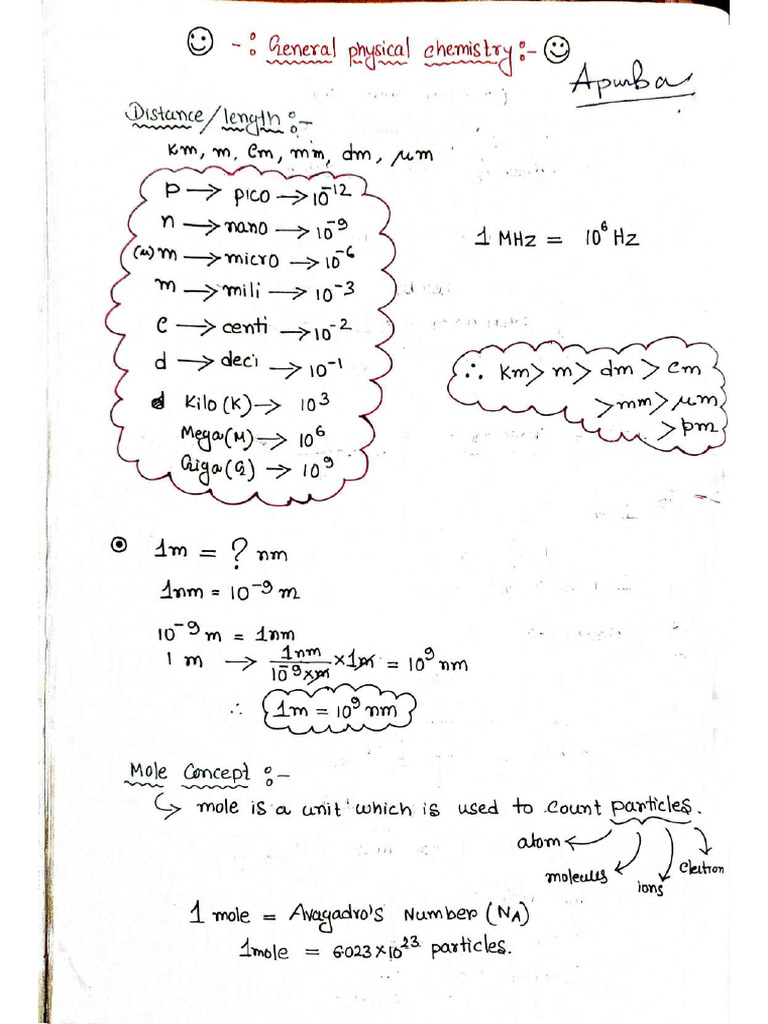 -: General physical chemistry:-
Apurba
Distance/length:-
Km, m, Cm, mm, dm, μm
p → pico → 10⁻¹²
n → nano → 10⁻⁹
(μ) m → micro → 10⁻⁶
m → mili → 10⁻³
c → centi → 10⁻²
d → deci → 10⁻¹
Kilo (K) → 10³
Mega (M) → 10⁶
Giga (G) → 10⁹
1 MHz = 10⁶ Hz
∴ Km > m > dm > cm
> mm > μm
> pm
1m = ? nm
1nm = 10⁻⁹ m
10⁻⁹ m = 1nm
1 m → 1nm/10⁻⁹ x m × 1m = 10⁹ nm
∴ 1m = 10⁹ nm
Mole Concept :-
↳ mole is a unit which is used to count particles.
atom
molecules
ions
electron
1 mole = Avagadro's Number (NA)
1mole = 6.023×10²³ particles.